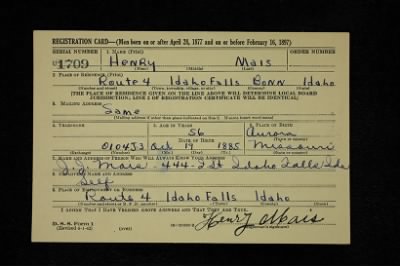 REGISTRATION CARD—(Men born on or after April 28, 1877 and on or before February 16, 1897)
SERIAL NUMBER 1. NAME (Print) ORDER NUMBER
U 1709 Henry Mais
(First) (Middle) (Last)
2. PLACE OF RESIDENCE (Print)
Route 4 Idaho Falls Bonn Idaho
(Number and street) (Town, township, village, or city) (County) (State)
[THE PLACE OF RESIDENCE GIVEN ON THE LINE ABOVE WILL DETERMINE LOCAL BOARD
JURISDICTION; LINE 2 OF REGISTRATION CERTIFICATE WILL BE IDENTICAL]
3. MAILING ADDRESS
Same
[Mailing address if other than place indicated on line 2. If same insert word same]
4. TELEPHONE 5. AGE IN YEARS 6. PLACE OF BIRTH
56 Aurora
DATE OF BIRTH (Town or county)
0104J3 Oct 19 1885 Missouri
(Exchange) (Number) (Mo.) (Day) (Yr.) (State or country)
7. NAME AND ADDRESS OF PERSON WHO WILL ALWAYS KNOW YOUR ADDRESS
Mais - 444 - 2 St Idaho Falls Ida
8. EMPLOYER'S NAME AND ADDRESS
Self
9. PLACE OF EMPLOYMENT OR BUSINESS
Route 4 Idaho Falls Idaho
(Number and street or R. F. D. number) (Town) (County) (State)
I AFFIRM THAT I HAVE VERIFIED ABOVE ANSWERS AND THAT THEY ARE TRUE.
D. S. S. Form 1
(Revised 4-1-42) (over) Henry Mais
(Registrant's signature)